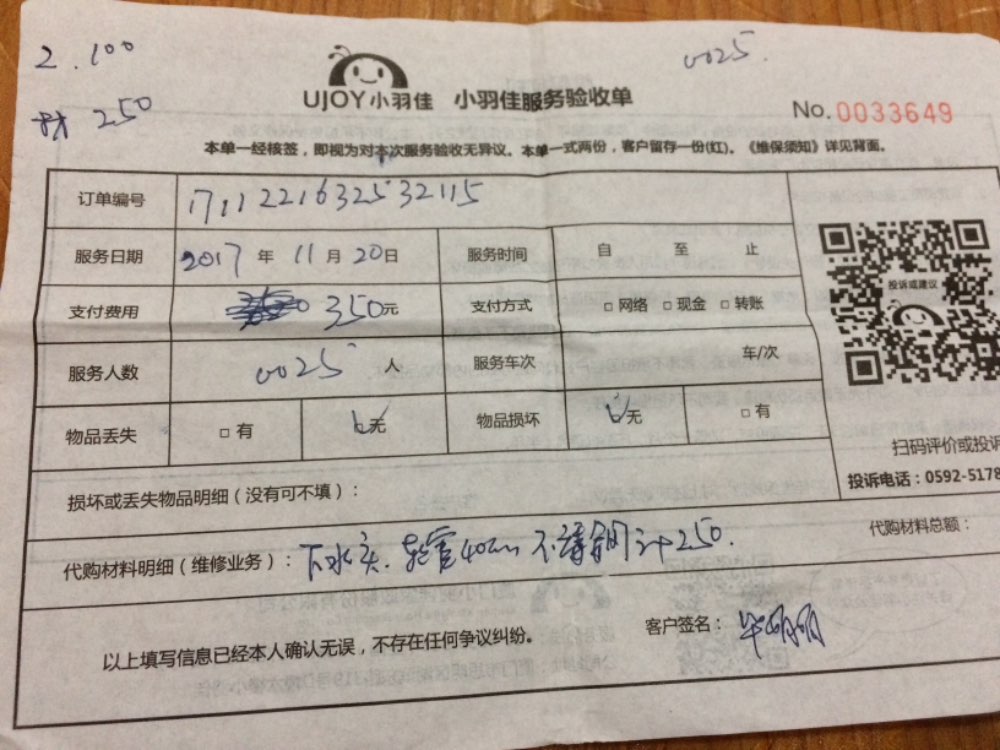 2.100
0025.
材 250
UJOY小羽佳 小羽佳服务验收单
No.0033649
本单一经核签，即视为对本次服务验收无异议。本单一式两份，客户留存一份(红)。《维保须知》详见背面。
订单编号 1711221632532115
服务日期 2017 年 11 月 20 日 服务时间 自 至 止
支付费用 350元 支付方式 □ 网络 □ 现金 □ 转账
服务人数 0025 人 服务车次 车/次
物品丢失 □ 有 无 物品损坏 无 □ 有
投诉或建议
扫码评价或投诉
投诉电话：0592-5178
损坏或丢失物品明细（没有可不填）：
代购材料总额：
代购材料明细（维修业务）：下水头.软管40cm 不锈钢 计250.
以上填写信息已经本人确认无误，不存在任何争议纠纷。
客户签名：